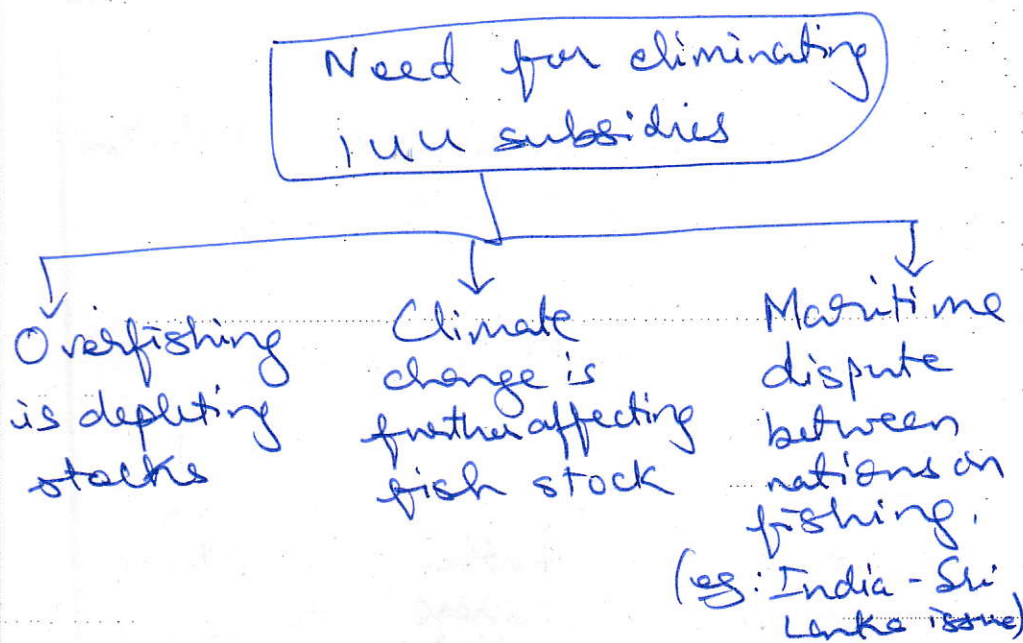 Need for eliminating
IUU subsidies
Overfishing
is depleting
stocks
Climate
change is
further affecting
fish stock
Maritime
dispute
between
nations on
fishing.
(eg: India - Sri
Lanka issue)